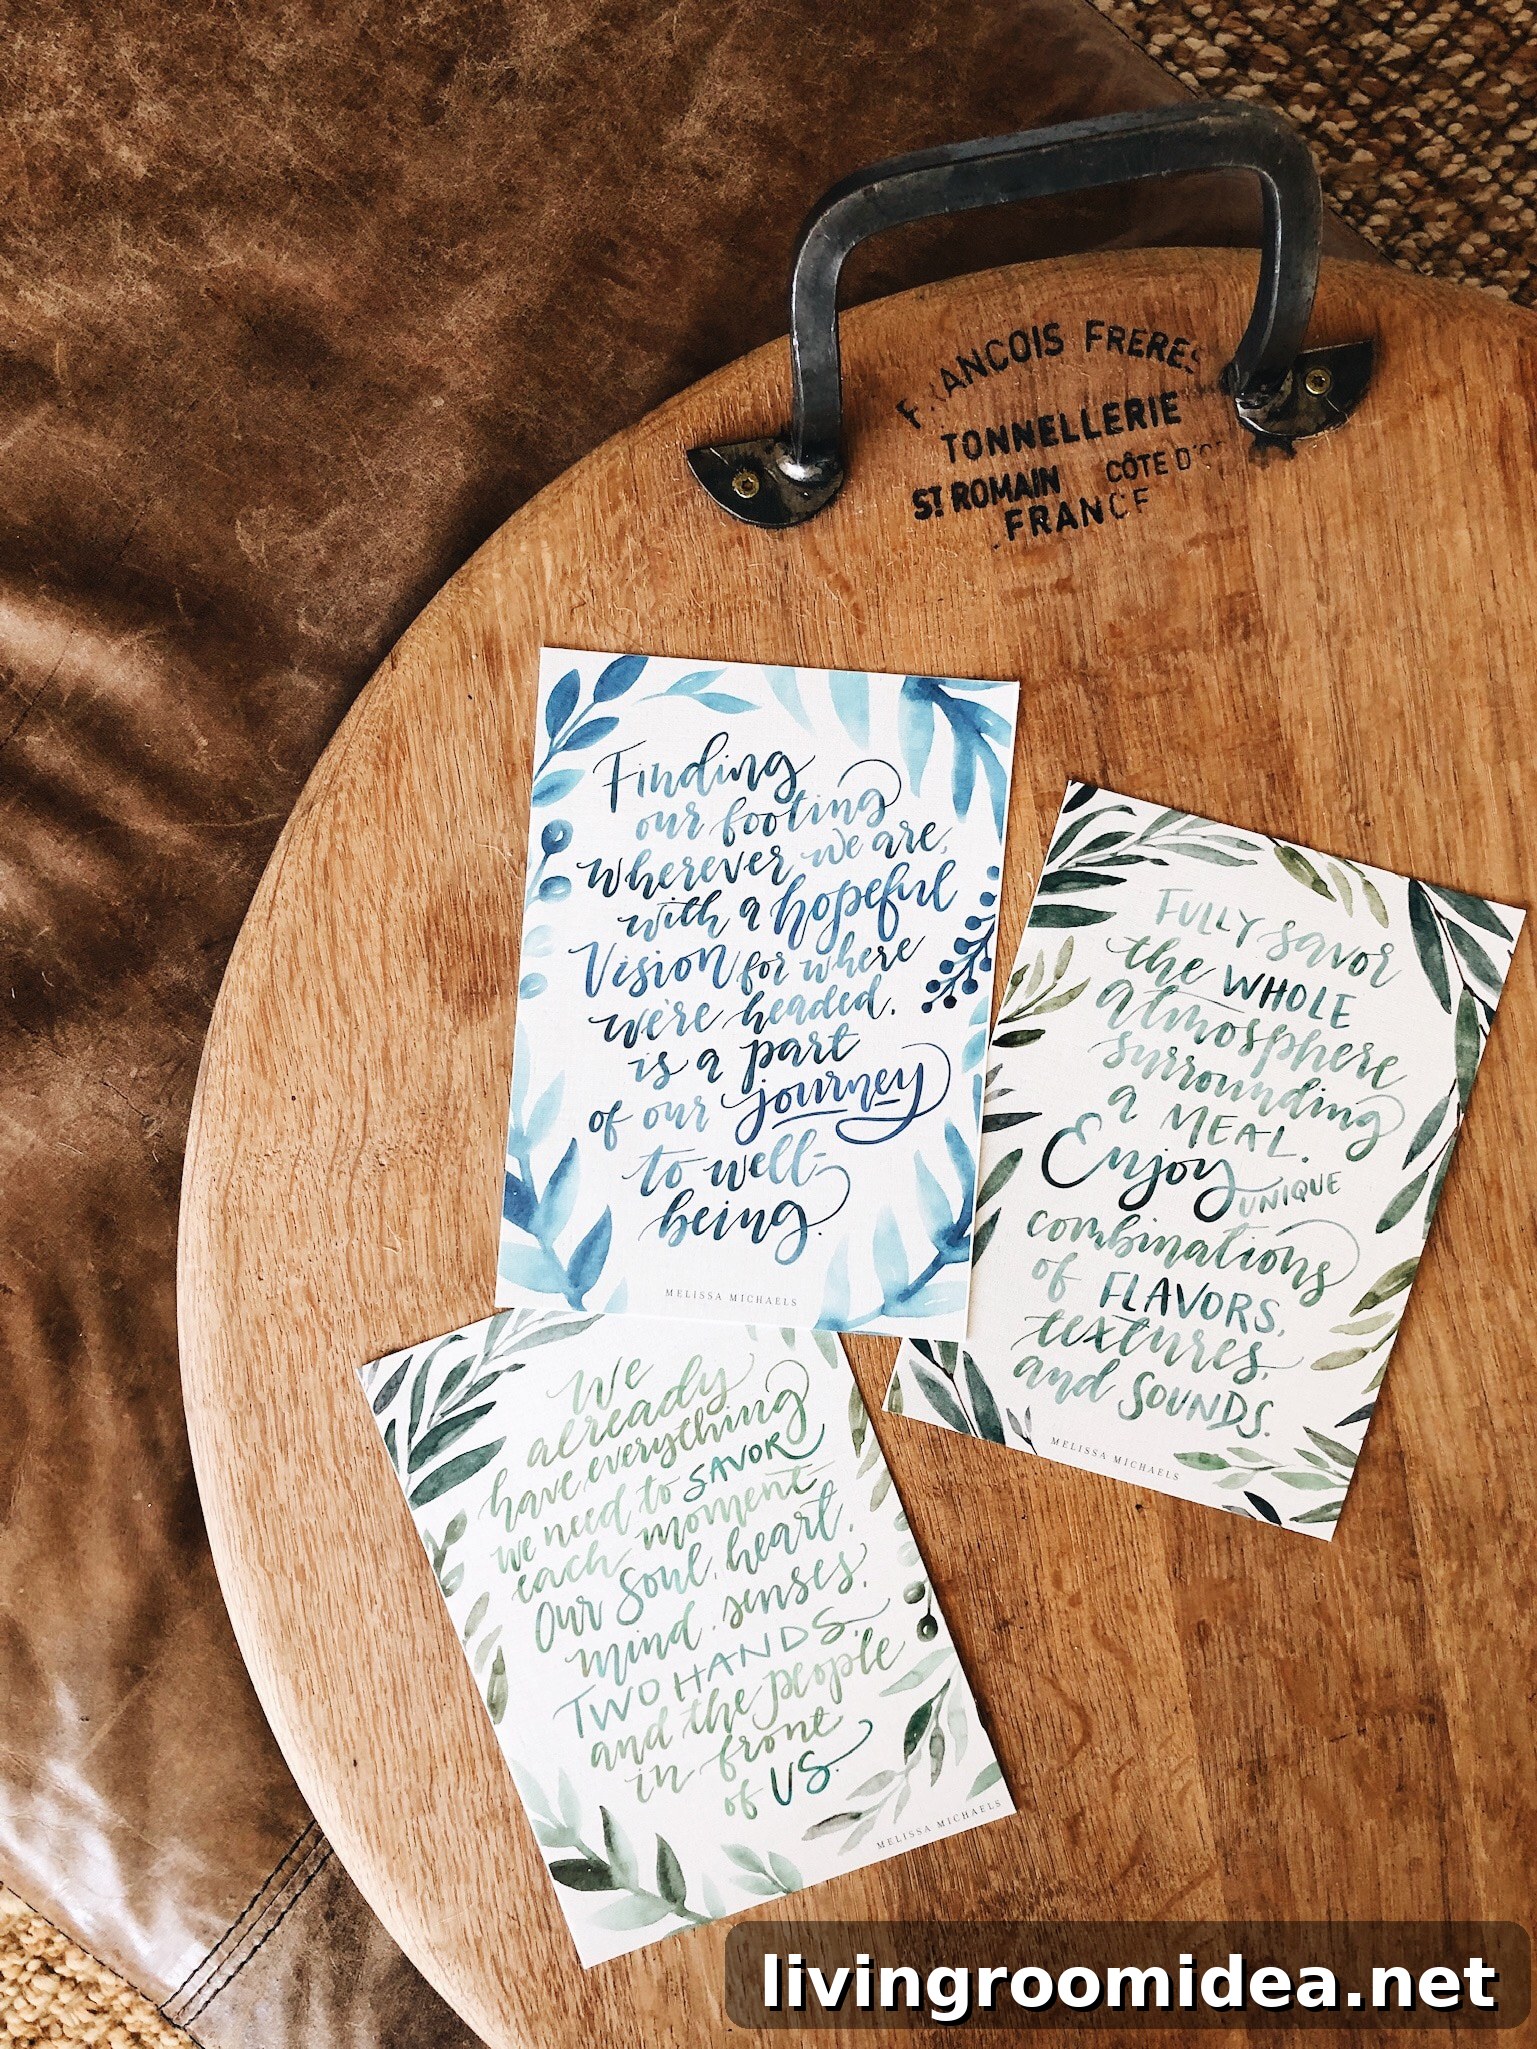 FRANCOIS FRERES
TONNELLERIE
ST ROMAIN CÔTE D'
FRANCE
Finding
our footing
wherever we are,
with a hopeful
vision for where
we're headed,
is a part
of our journey
to well-
being.
MELISSA MICHAELS
FULLY savor
the WHOLE
atmosphere
surrounding
a MEAL.
Enjoy UNIQUE
combinations
of FLAVORS,
textures,
and SOUNDS.
MELISSA MICHAELS
We
already
have everything
we need to SAVOR
each moment
Our Soul, heart,
mind, senses,
TWO HANDS,
and the people
in front
of US.
MELISSA MICHAELS
livingroomidea.net